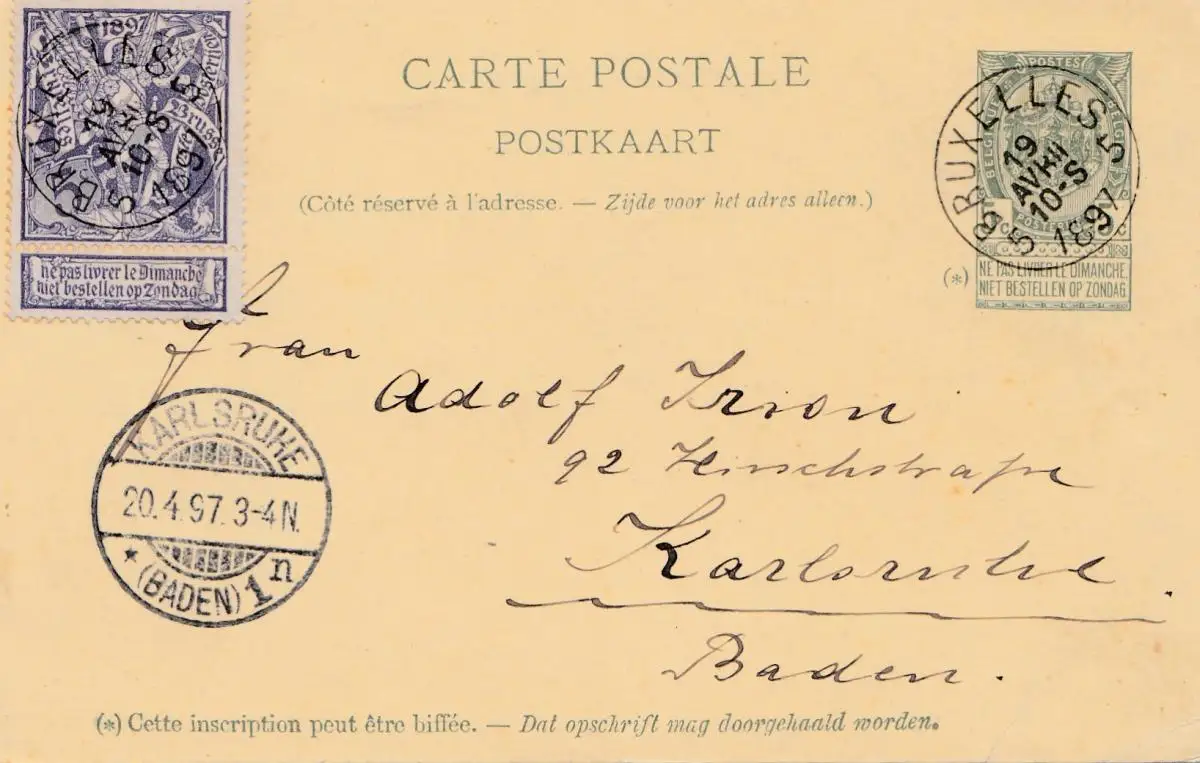 1897
Bruxelles
Bruxelles
BRUXELLES 5
19
AVRIL
10-S
1897
5
ne pas livrer le Dimanche
niet bestellen op Zondag
CARTE POSTALE
POSTKAART
(Côté réservé à l'adresse. — Zijde voor het adres alleen.)
POSTES
BELGIQUE
BELGIË
BRUXELLES 5
19
AVRIL
10-S
1897
5
(*)
NE PAS LIVRER LE DIMANCHE
NIET BESTELLEN OP ZONDAG
Frau
Adolf Irion
92 Hirschstraße
Karlsruhe
Baden.
KARLSRUHE
20.4.97. 3-4 N.
* (BADEN) 1 n
(*) Cette inscription peut être biffée. — Dat opschrift mag doorgehaald worden.